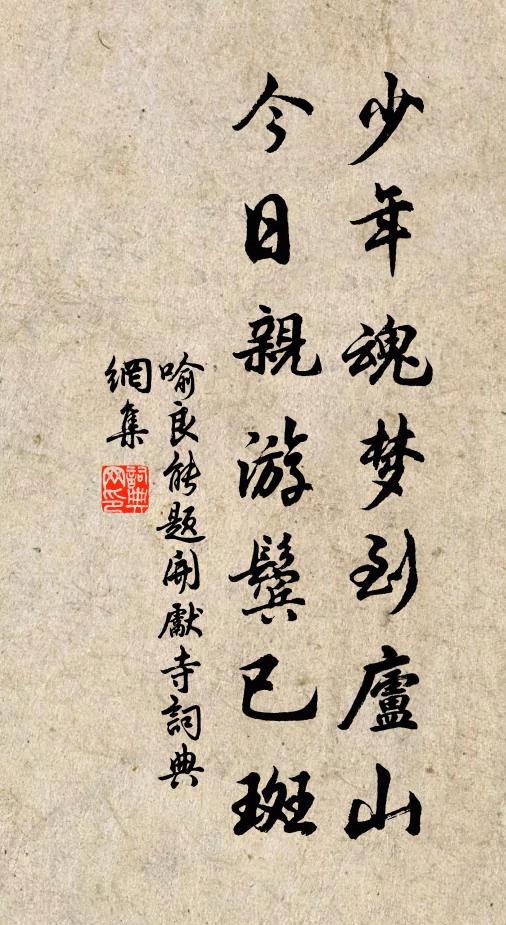 少年魂梦到廬山
今日親游鬓已斑
喻良能题開獻寺詞典
網集
詞典
网印